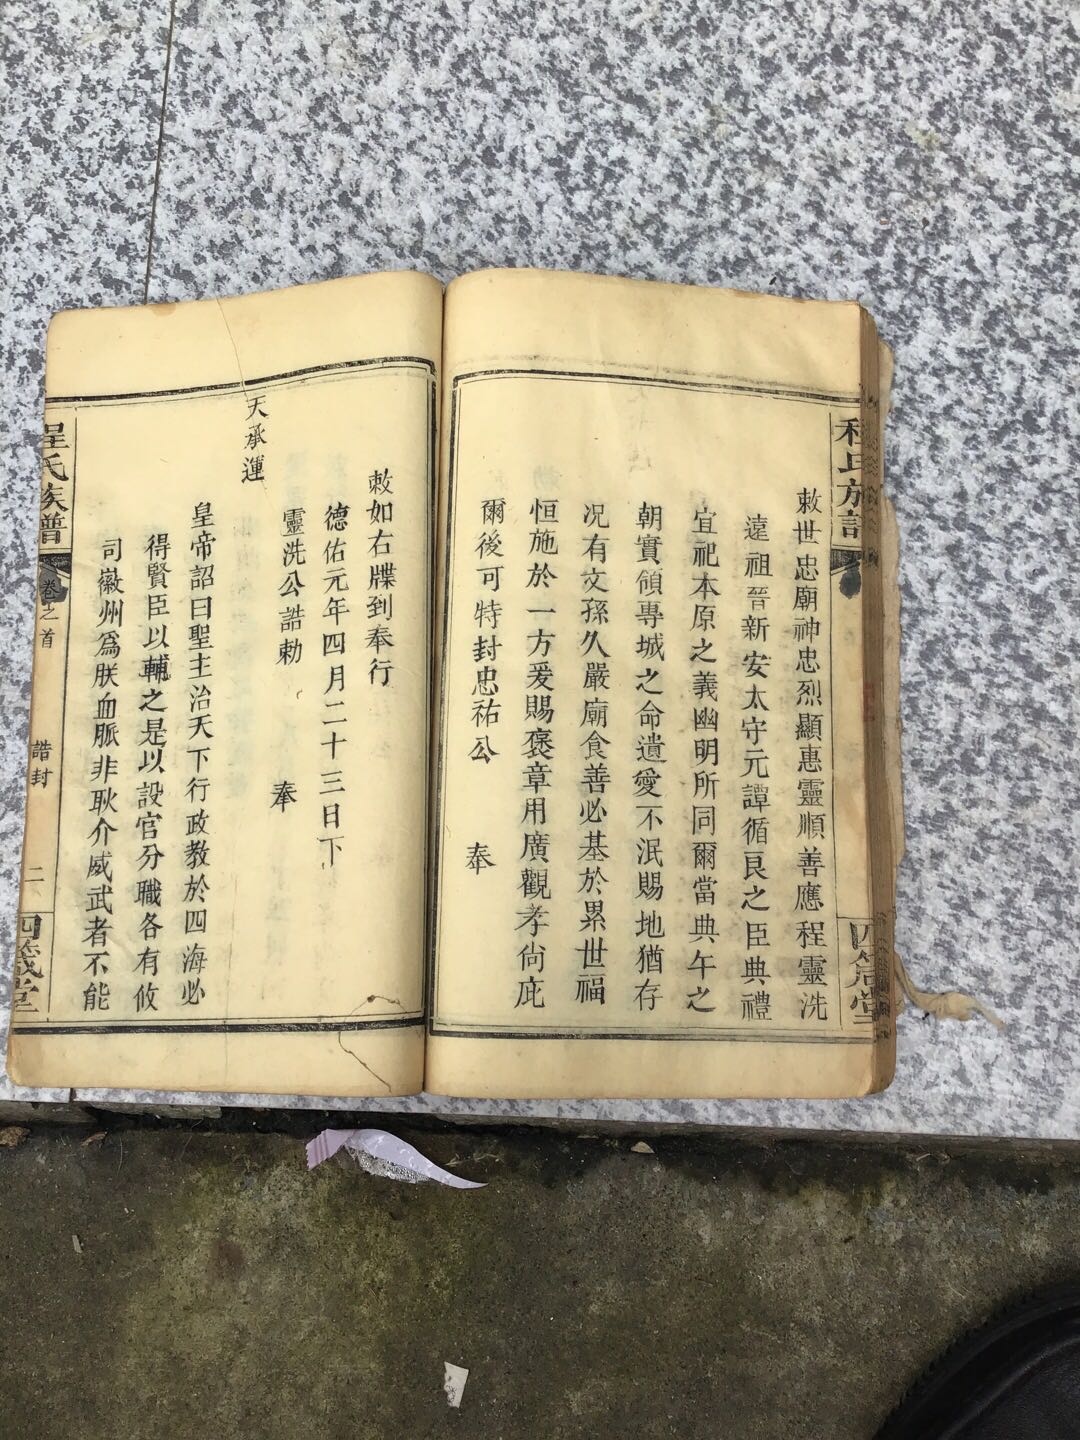 敕世忠廟神忠烈顯惠靈順善應程靈洗
遠祖晉新安太守元譚循良之臣典禮
宜祀本原之義幽明所同爾當典午之
朝實領專城之命遺愛不泯賜地猶存
况有文孫久嚴廟食善必基於累世福
恒施於一方爰賜褒章用廣觀孝尚庇
爾後可特封忠祐公 奉
敕如右牒到奉行
德佑元年四月二十三日下
靈洗公誥勅 奉
天承運
皇帝詔曰聖主治天下行政教於四海必
得賢臣以輔之是以設官分職各有攸
司徽州為朕血脈非耿介威武者不能
程氏族譜 卷之首 誥封 二